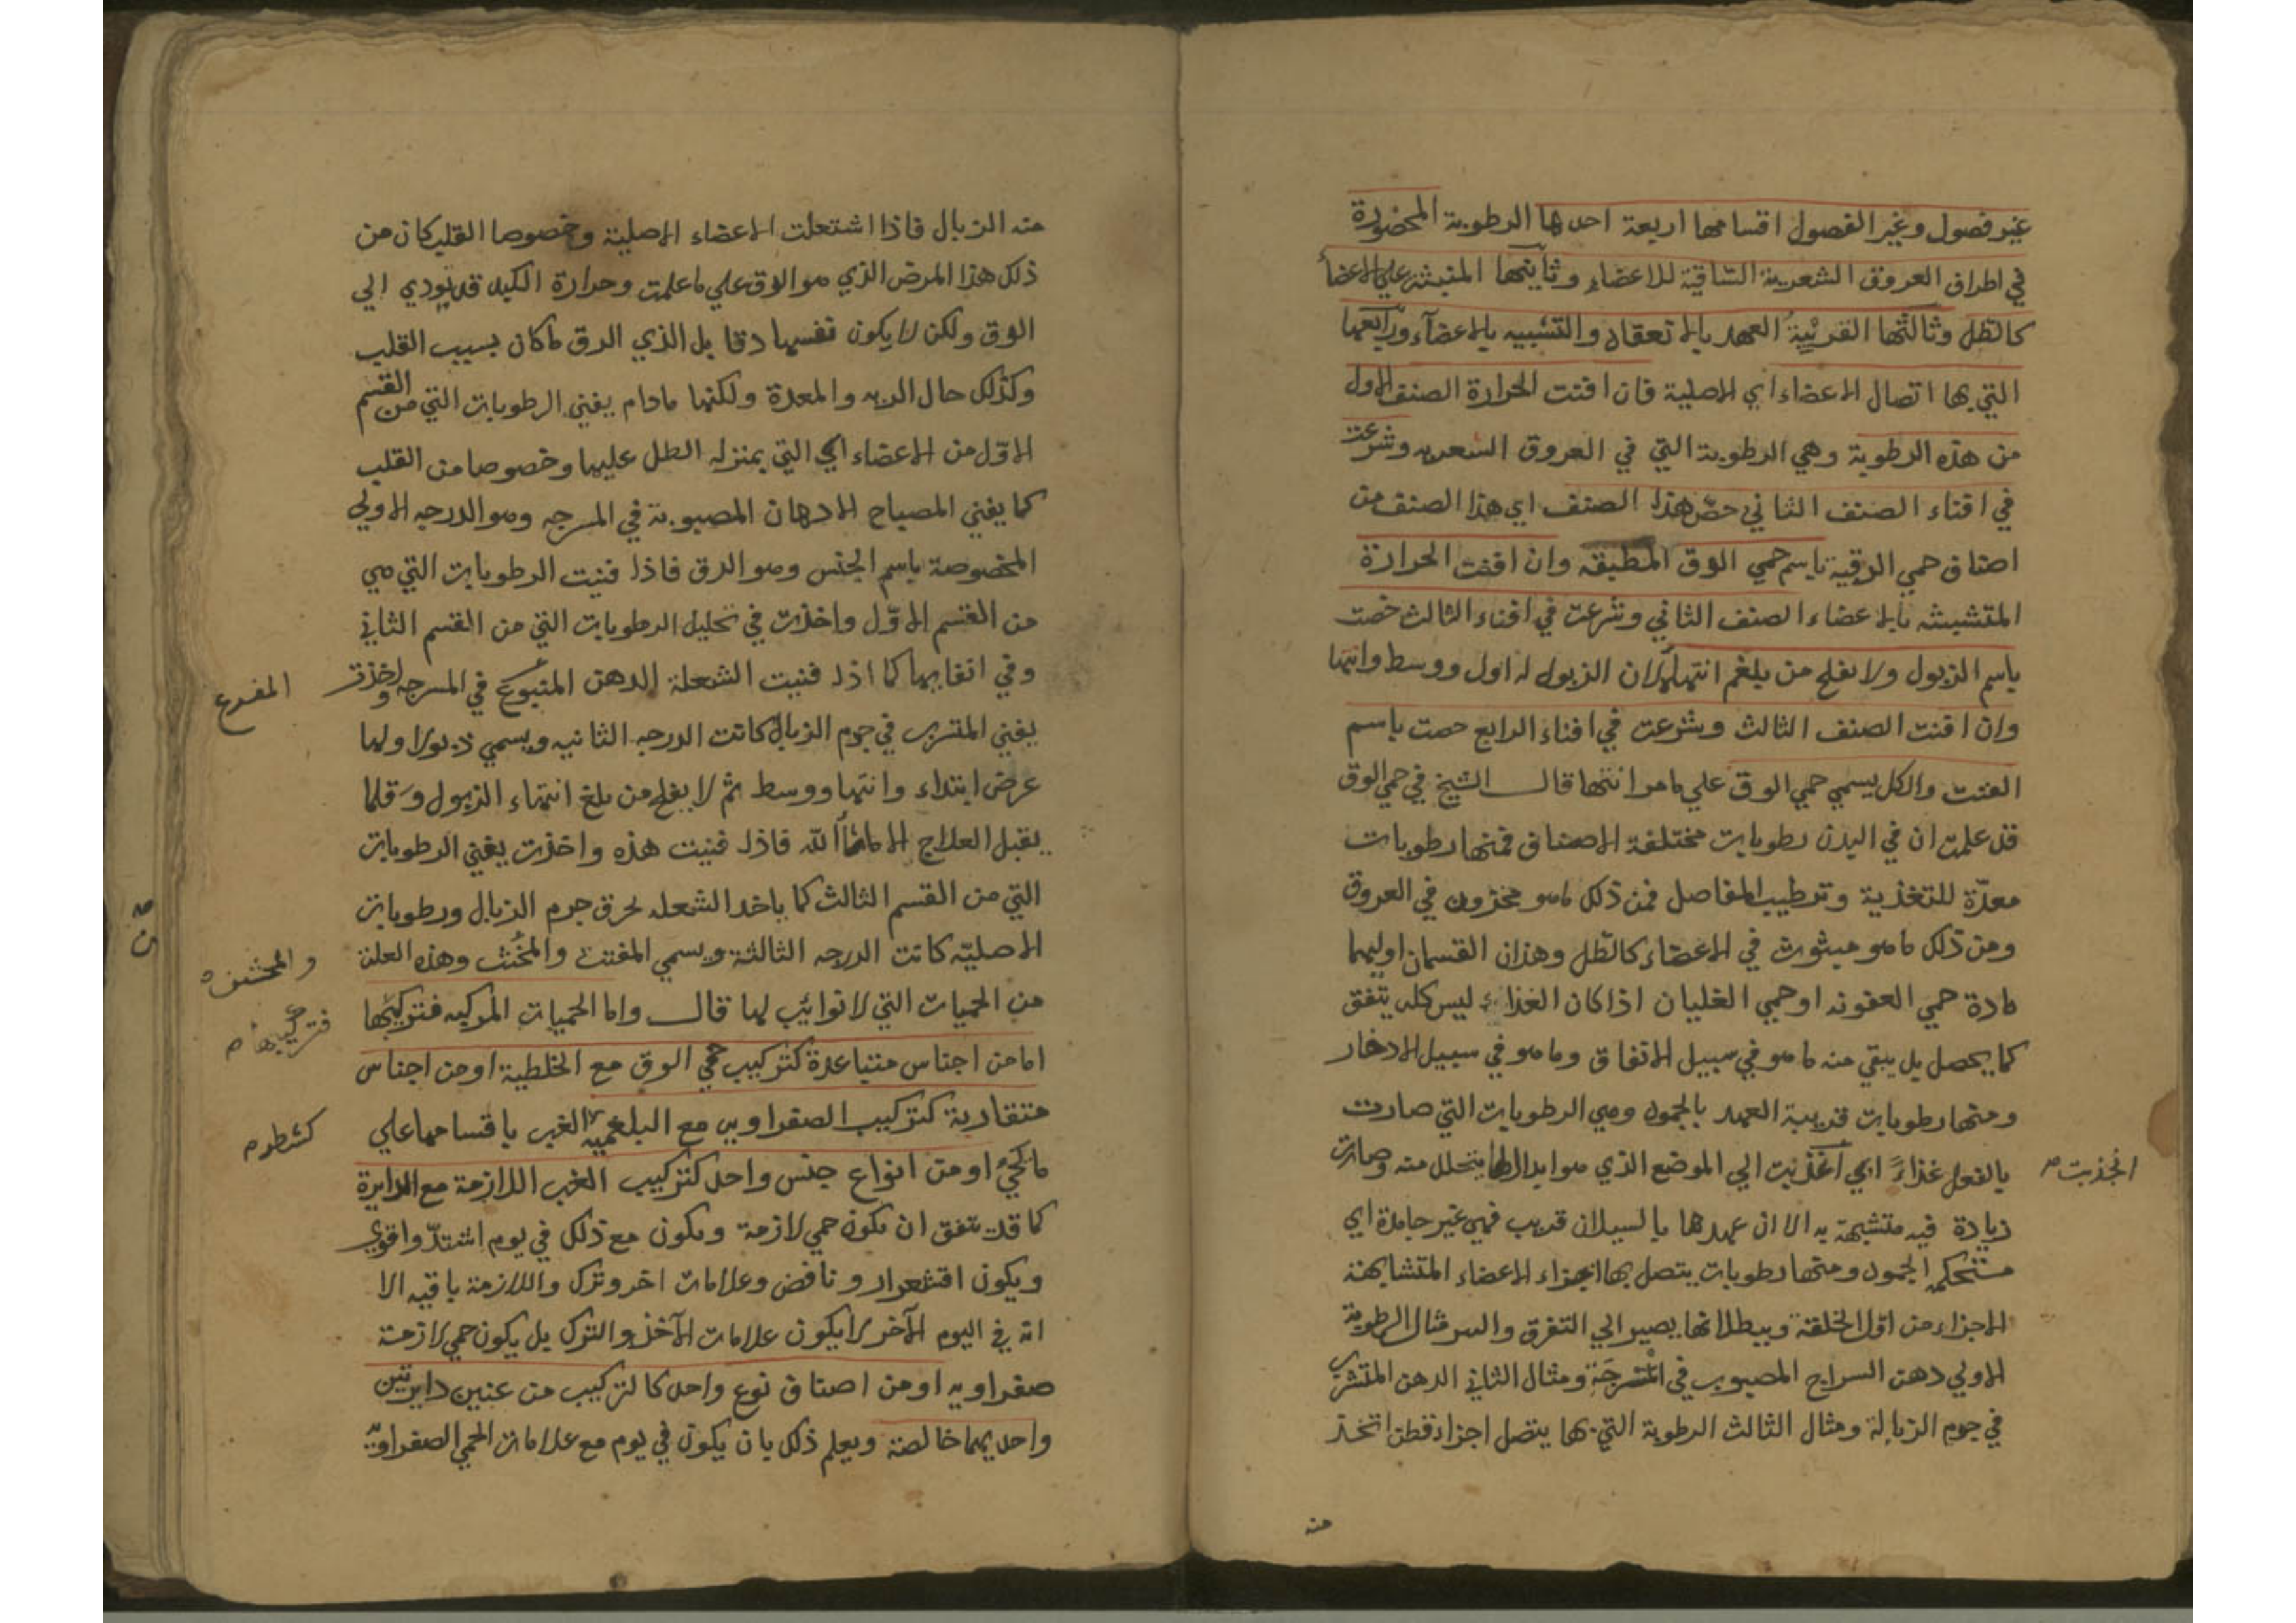 غير فصول وغير الفصول اقسامها اربعة احدها الرطوبة المحصورة
في اطراف العروق الشعرية الساقية للاعضاء وثانيتها المنبثة علي الاعضا
كالطل وثالثتها القريبة العهد بالانعقاد والتشبيه بالاعضآء ورابعها
التي بها اتصال الاعضاء اي الاصلية فان افنت الحرارة الصنف الاول
من هذه الرطوبة وهي الرطوبة التي في العروق الشعريه وشرعت
في افناء الصنف الثاني خصّ هذا الصنف اي هذا الصنف من
اصناف حمي الدقية باسم حمي الدق المطبقه وان افنت الحرارة
المتشبثه بالاعضاء الصنف الثاني وشرعت في افناء الثالث خصت
باسم الذبول ولا يفلح من يبلغم انتهاء لان الذبول له اول ووسط وانتها
وان افنت الصنف الثالث وشرعت في افناء الرابع خصت باسم
المفتت والكل يسمي حمي الدق علي مامر انتها قال الشيخ في حمي الدق
قد علمت ان في البدن رطوبات مختلفة الاصناف فمنها رطوبات
معدّة للتغذية وترطيب المفاصل فمن ذلك ماهو مخزون في العروق
ومن ذلك ماهو مبثوث في الاعضاء كالطل وهذان القسمان اوليهما
مادة حمي العفونه او حمي الغليان اذا كان الغذاء ليس كله يتفق
كما يحصل بل يبقي منه ماهو في سبيل الانفاق وماهو في سبيل الادخار
ومنها رطوبات قريبة العهد بالجمود وهي الرطوبات التي صارت
بالفعل غذاءً اي الي الموضع الذي هو ابدال ما يتحلل منه وصارت
انجذبت
زيادة فيه متشبهة به الا ان عهدها بالسيلان قريب فهي غير جامدة اي
مستحكم الجمود ومنها رطوبات يتصل بها اجزاء الاعضاء المتشابهة
الاجزاء من اوّل الخلقة وببطلانها يصير الي التفرق مثال الرطوبة
الاولي دهن السراج المصبوب في المسرجة ومثال الثاني الدهن المتشرب
في جرم الذبالة ومثال الثالث الرطوبة التي بها يتصل اجزاء قطن اتخذ
منه
منه الذبال فاذا اشتعلت الاعضاء الاصلية وخصوصا القلب كان من
ذلك هذا المرض الذي هو الدق علي ماعلمت وحرارة الكبد قد يودي الي
الدق ولكن لا يكون نفسها دقا بل الذي الدق ماكان بسبب القلب
وكذلك حال الريه والمعدة ولكنها مادام يفني الرطوبات التي من القسم
الاوّل من الاعضاء اي التي بمنزله الطل عليها وخصوصا من القلب
كما يفني المصباح الادهان المصبوبة في المسرجه وهو الدرجه الاولي
المخصوصة باسم الجنس وهو الدق فاذا فنيت الرطوبات التي هي
من القسم الاوّل واخذت في تحليل الرطوبات التي من القسم الثاني
وفي افنايها كما اذا فنيت الشعلة الدهن المتبوع في المسرجه واخذت
المفرع
يفني المتشرب في جرم الذبال كانت الدرجه الثانيه ويسمي ذبولا ولها
عرض ابتداء وانتها ووسط ثم لا يفلح من بلغ انتهاء الذبول وقلما
يقبل العلاج الا ماشاالله فاذا فنيت هذه واخذت يفني الرطوبات
التي من القسم الثالث كما ياخد الشعله لحرق جرم الذبال ورطوبات
الاصليّة كانت الدرجه الثالثة ويسمي المفتت والمخنث وهذه العلة
والمحشف
من الحميات التي لا نوائب لها قال واما الحميات المركبه فتركيبها
فتركيبها م
اما من اجناس متباعدة كتركيب حمي الدق مع الخلطية او من اجناس
متقاربة كتركيب الصفراويه مع البلغميه الغب باقسامها علي
كشطر م
مايجي او من انواع جنس واحد كتركيب الغب اللازمة مع الدايرة
كما قد يتفق ان يكون حمي لازمة ويكون مع ذلك في يوم اشتدّ واقوي
ويكون اقشعرار ونافض وعلامات اخر وترك واللازمة باقيه الا
انه في اليوم الآخر لا يكون علامات الآخذ والترك بل يكون حمي لازمة
صفراويه او من اصناف نوع واحد كالتركيب من غبين دايرتين
واحديهما خالصة ويعلم ذلك بان يكون في يوم مع علامات الحمي الصفراويه